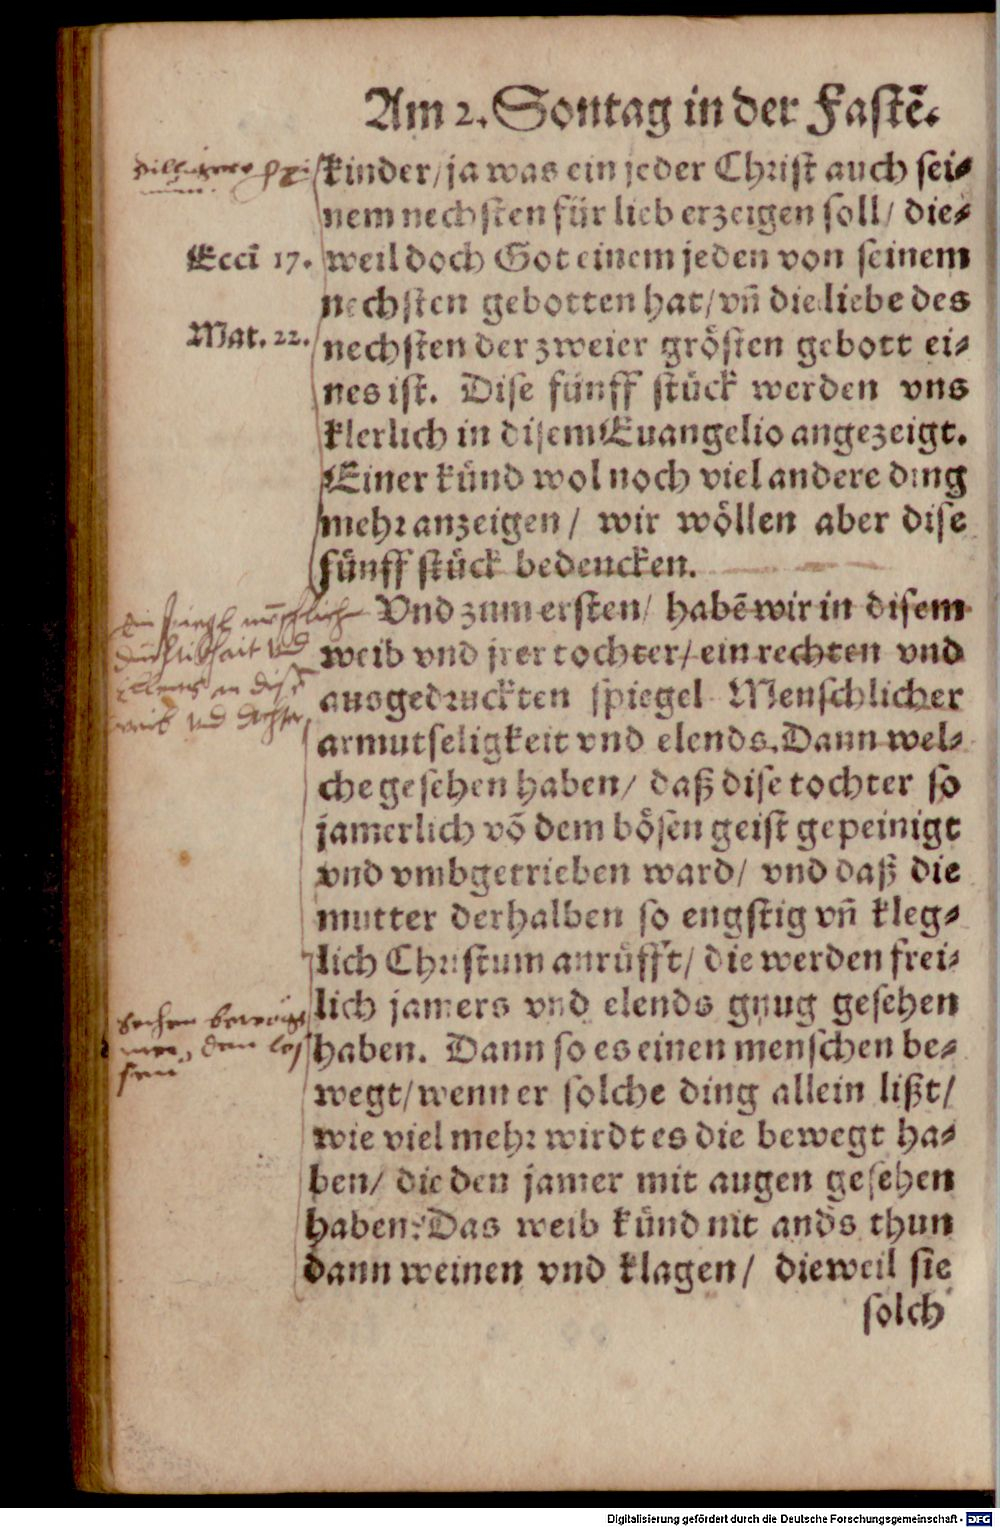 Am 2. Sontag in der Fastẽ.
kinder/ ja was ein jeder Christ auch sei⸗
nem nechsten für lieb erzeigen soll/ die⸗
Eccĩ 17. weil doch Got einem jeden von seinem
nechsten gebotten hat/ vñ die liebe des
Mat. 22. nechsten der zweier grösten gebott ei⸗
nes ist. Dise fünff stück werden vns
klerlich in disem Euangelio angezeigt.
Einer künd wol noch viel andere ding
mehr anzeigen/ wir wöllen aber dise
fünff stück bedencken.
Vnd zum ersten/ habẽ wir in disem
weib vnd jrer tochter/ ein rechten vnd
ausgedruckten spiegel Menschlicher
armutseligkeit vnd elends. Dann wel⸗
che gesehen haben/ daß dise tochter so
jamerlich võ dem bösen geist gepeinigt
vnd vmbgetrieben ward/ vnd daß die
mutter derhalben so engstig vñ kleg⸗
lich Christum anrüfft/ die werden frei⸗
lich jamers vnd elends gnug gesehen
haben. Dann so es einen menschen be⸗
wegt/ wenn er solche ding allein lißt/
wie viel mehr wirdt es die bewegt ha⸗
ben/ die den jamer mit augen gesehen
haben? Das weib künd nit anders thun
dann weinen vnd klagen/ dieweil sie
solch
weib vnd dochter
Digitalisierung gefördert durch die Deutsche Forschungsgemeinschaft - DFG